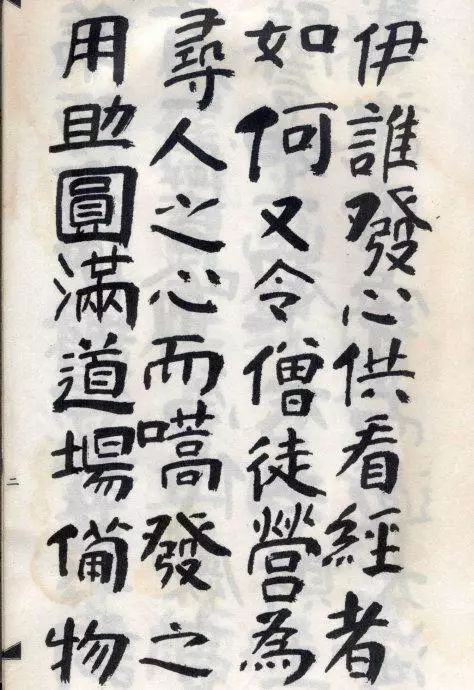 伊誰發心供看經者
如何又令僧徒營為
尋人之心而嚆發之
用助圓滿道場備物
二